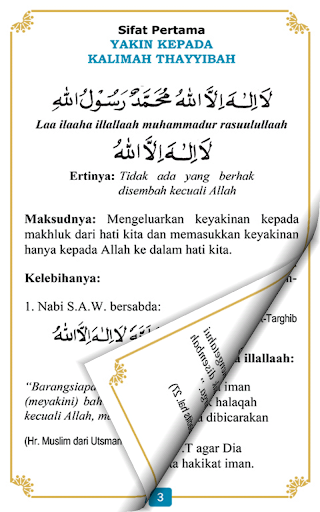 Sifat Pertama
YAKIN KEPADA
KALIMAH THAYYIBAH
لَا إِلٰهَ إِلَّا اللهُ مُحَمَّدٌ رَسُوْلُ اللهِ
Laa ilaaha illallaah muhammadur rasuulullaah
لَا إِلٰهَ إِلَّا اللهُ
Ertinya: Tidak ada yang berhak
disembah kecuali Allah
Maksudnya: Mengeluarkan keyakinan kepada
makhluk dari hati kita dan memasukkan keyakinan
hanya kepada Allah ke dalam hati kita.
Kelebihanya:
1. Nabi S.A.W. bersabda:
-Targhib
لَا إِلٰهَ إِلَّا اللهُ
illallaah:
"Barangsiapa
iman
(meyakini) bah
halaqah
kecuali Allah, m
dibicarakan
(Hr. Muslim dari Utsman
T agar Dia
hakikat iman.
3